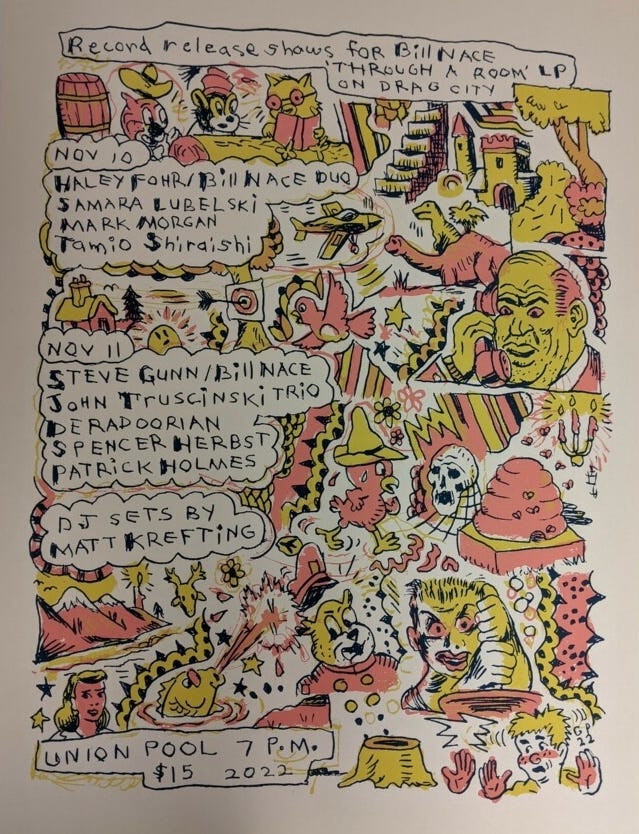 Record release shows for Bill NACE
'THROUGH A ROOM' LP
ON DRAG CITY
NOV 10
HALEY FOHR/Bill NACE DUO
SAMARA LUBELSKI
MARK MORGAN
Tamio Shiraishi
NOV 11
STEVE GUNN/Bill NACE
JOHN TRUSCINSKI TRIO
DERADOORIAN
SPENCER HERBST
PATRICK HOLMES
DJ SETS BY
MATT KREFTING
UNION POOL 7 P.M.
$15 2022